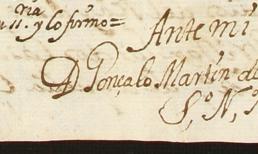 y lo firmo=
Ante mi
D Gonçalo Martin de
S.º N.